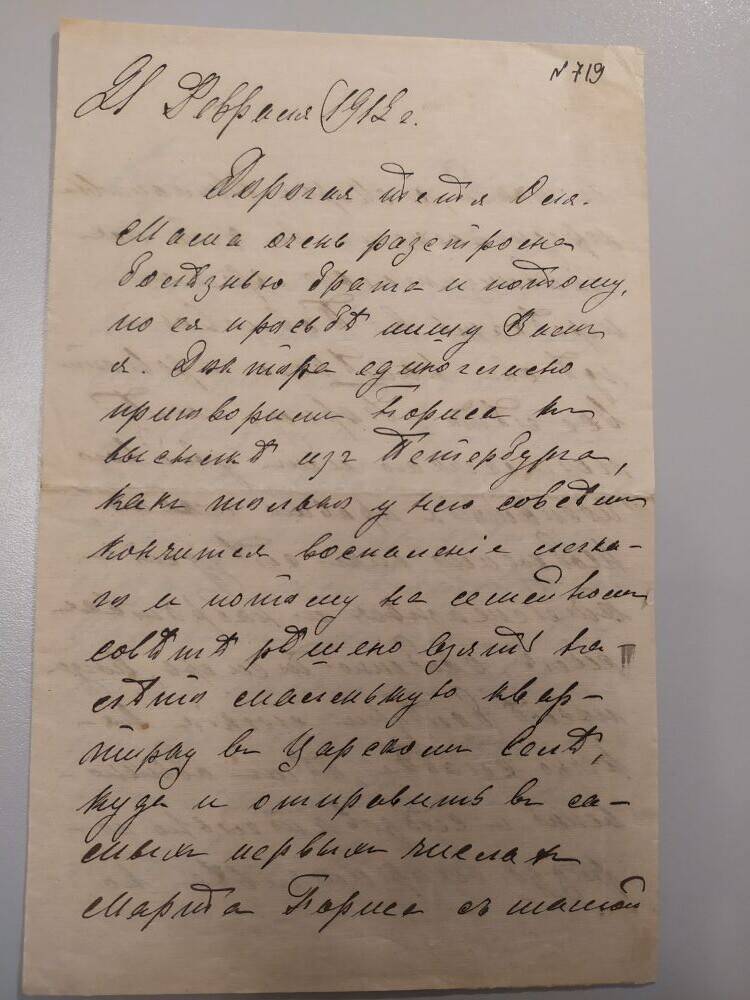 № 719
21 Февраля 1912 г.
Дорогая тетя Оля.
Мама очень разстроена
болѣзнью брата и потому,
по ея просьбѣ пишу Вам
я. Доктора единогласно
приговорили Бориса къ
высылкѣ изъ Петербурга,
какъ только у него совсѣмъ
кончится воспаленіе легка-
го и потому на семейномъ
совѣтѣ рѣшено взять на
лѣто маленькую квар-
тирку въ Царскомъ Селѣ,
куда и отправить въ са-
мыхъ первыхъ числахъ
Марта Бориса съ мамой